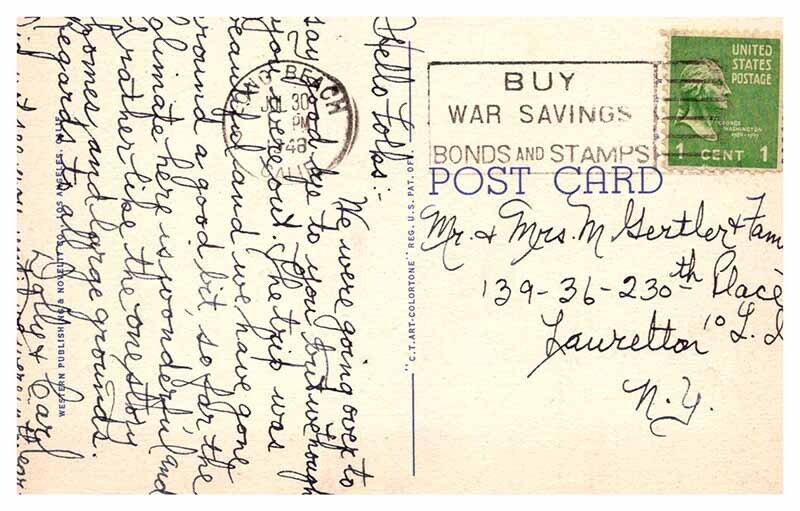 Hello Folks:-
We were going over to
say good bye to you but we though
you were out. The trip was
beautiful and we have gone
around a good bit, so far the
climate here is wonderful and
I rather like the one story
homes, and large grounds.
Regards to all
& Carl
LONG BEACH
JUL 30
PM
48
CALIF
BUY
WAR SAVINGS
BONDS AND STAMPS
UNITED
STATES
POSTAGE
GEORGE
WASHINGTON
1 CENT 1
POST CARD
Mr. & Mrs. M Gertler & Fam
139-36-230th Place
Lauretton 10 L.I
N.Y.
WESTERN PUBLISHING & NOVELTY CO., LOS ANGELES, CALIF.
"C.T. ART-COLORTONE" REG. U.S. PAT. OFF.